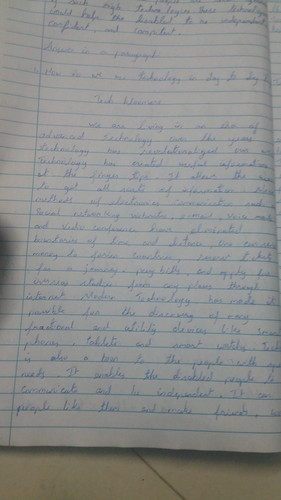 if such high technologies these technology
could help the disabled to be independent
confident, and competent.
Answer in a paragraph:
How do we use technology in day to day l
Tech bloomers
We are living in an era of
advanced technology. over the years
technology has revolutionalized our
Technology has created useful information
at the finger tips. It allows the
to get all sorts of information.
methods of electronic communication
Social networking websites, e-mail, voice mails
and video conference have eliminated
boundaries of time and distance.
money to foreign countries,
for a journey, pay bills, and apply for
overseas studies from any place through
internet. Modern Technology has made it
possible for the discovery of many
practical and utility devices like
phones, tablets and smart watches. Tech
is also a boon to the people with spe
needs. It enables the disabled people to
communicate and be independent. It can
people like them